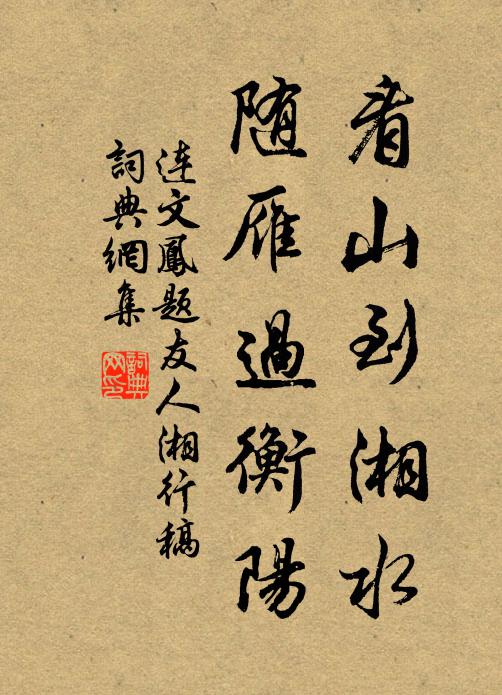 看山到湘水
随雁過衡陽
連文鳳題友人湘行稿
詞典網集
詞典網印